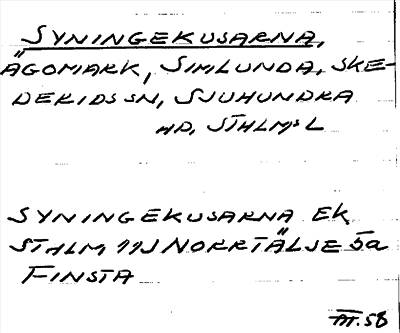 SYNINGEKUSARNA,
ÄGOMARK, SIMLUNDA, SKE-
DERIDS SN, SJUHUNDRA
HD, STHLMS L
SYNINGEKUSARNA EK
STHLM 11J NORRTÄLJE 5a
FINSTA
AT. 58